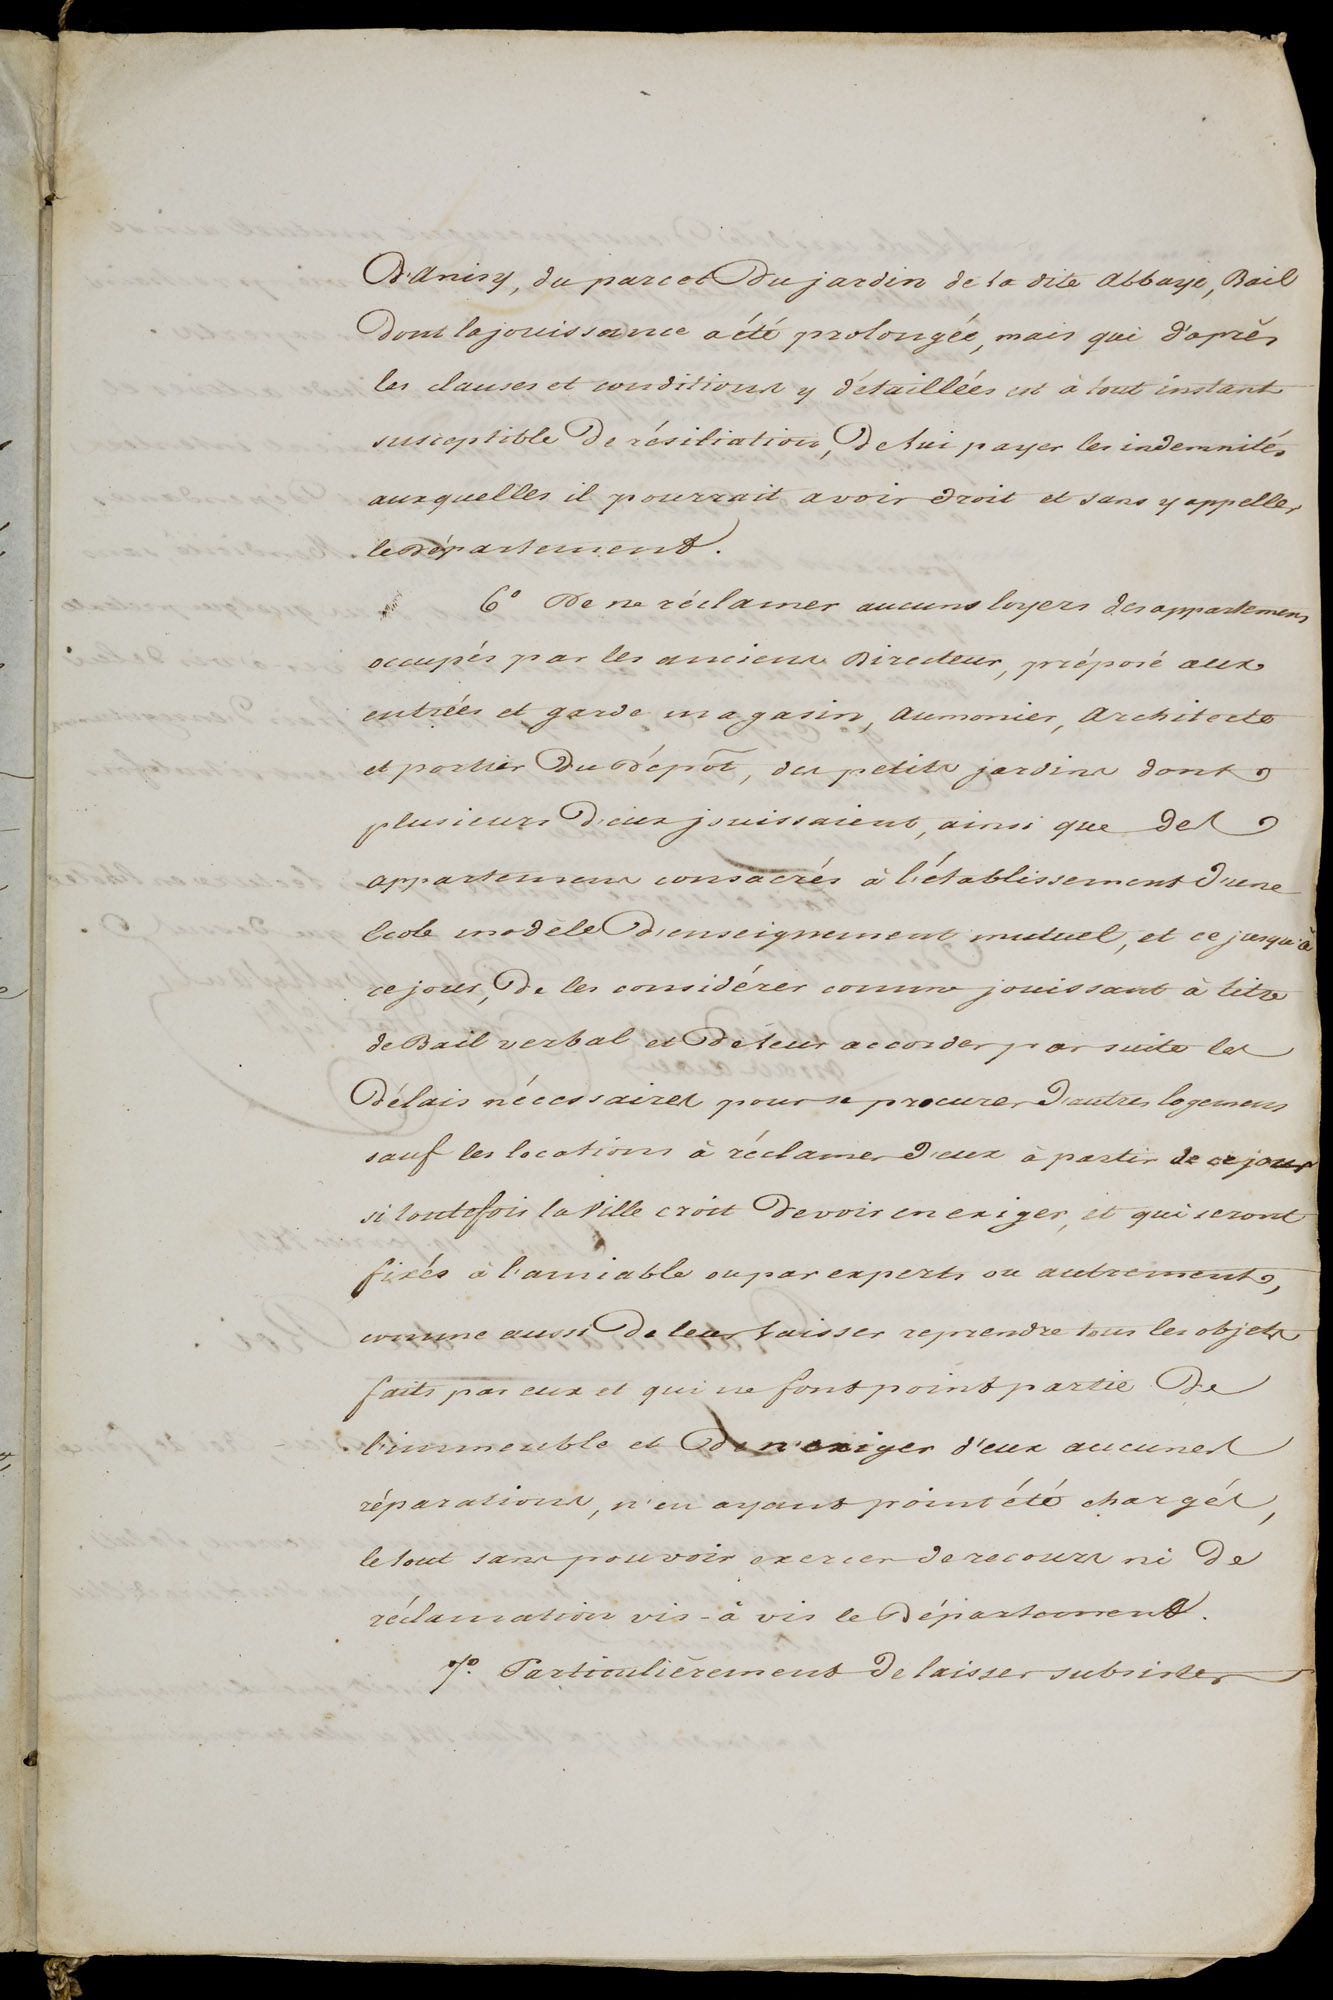 D'Anisy, du parc et Du jardin de la dite Abbaye, Bail
Dont la jouissance a été prolongée, mais qui d'après
les clauses et conditions y détaillées est à tout instant
susceptible De résiliation, De lui payer les indemnités
auxquelles il pourrait avoir droit et sans y appeller
le Département.
6° De ne réclamer aucuns loyers des appartemens
occupés par les anciens Directeur, préposé aux
entrées et garde magasin, Aumonier, Architecte
et portier Du Dépôt, des petits jardins dont
plusieurs D'eux jouissaient, ainsi que des
appartemens consacrés à l'établissement D'une
Ecole modèle D'enseignement mutuel, et ce jusqu'à
ce jour, De les considérer comme jouissant à titre
de Bail verbal et De leur accorder par suite les
Délais nécessaires pour se procurer D'autres logemens
sauf les locations à réclamer D'eux à partir de ce jour
si toutefois la Ville croit Devoir en exiger, et qui seront
fixés à l'amiable ou par experts ou autrement,
comme aussi De leur laisser reprendre tous les objets
faits par eux et qui ne font point partie De
l'immeuble et De n'exiger d'eux aucunes
réparations, n'en ayant point été chargés,
le tout sans pouvoir exercer de recours ni De
réclamation vis-à vis le Département.
7°. Particulièrement De laisser subsister